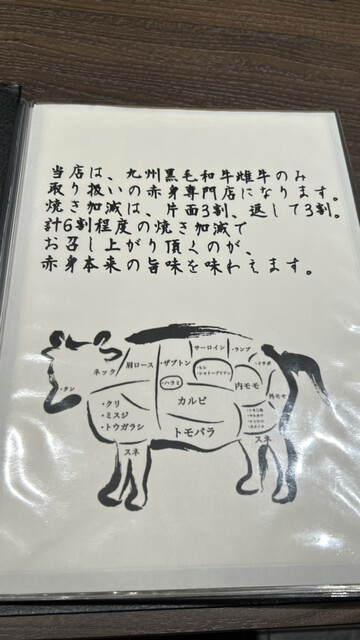 当店は、九州黒毛和牛雌牛のみ
取り扱いの赤身専門店になります。
焼き加減は、片面3割、返して3割。
計6割程度の焼き加減で
お召し上がり頂くのが、
赤身本来の旨味を味わえます。
サーロイン
・ランプ
ネック
肩ロース
ザブトン
・イチボ
・ヒレ
・シャトーブリアン
・タン
・ハラミ
内モモ
外モモ
・クリ
・ミスジ
・トウガラシ
カルビ
トモバラ
スネ
スネ